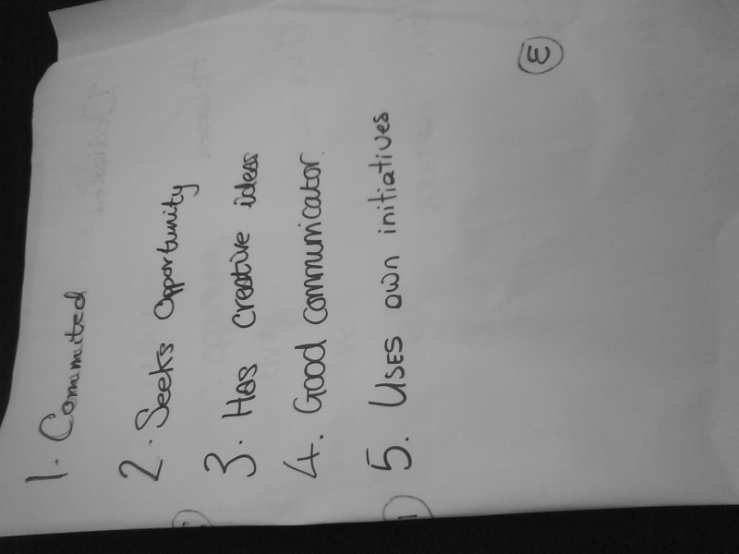 1. Committed
2. Seeks Opportunity
3. Has creative ideas
4. Good communicator
5. USES own initiatives